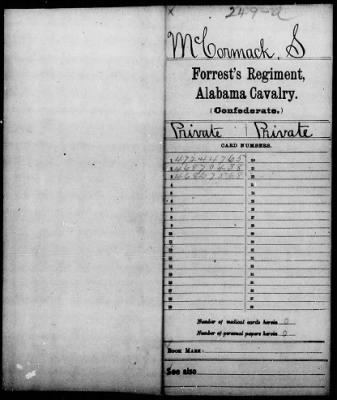 x 249-a
McCormack, S
Forrest's Regiment,
Alabama Cavalry.
(Confederate.)
Private | Private
CARD NUMBERS.
1 47244765
2
3
4
5
6
7
8
9
10
11
12
13
14
15
16
17
18
Number of medical cards herein 0
Number of personal papers herein 0
BOOK MARK:
See also